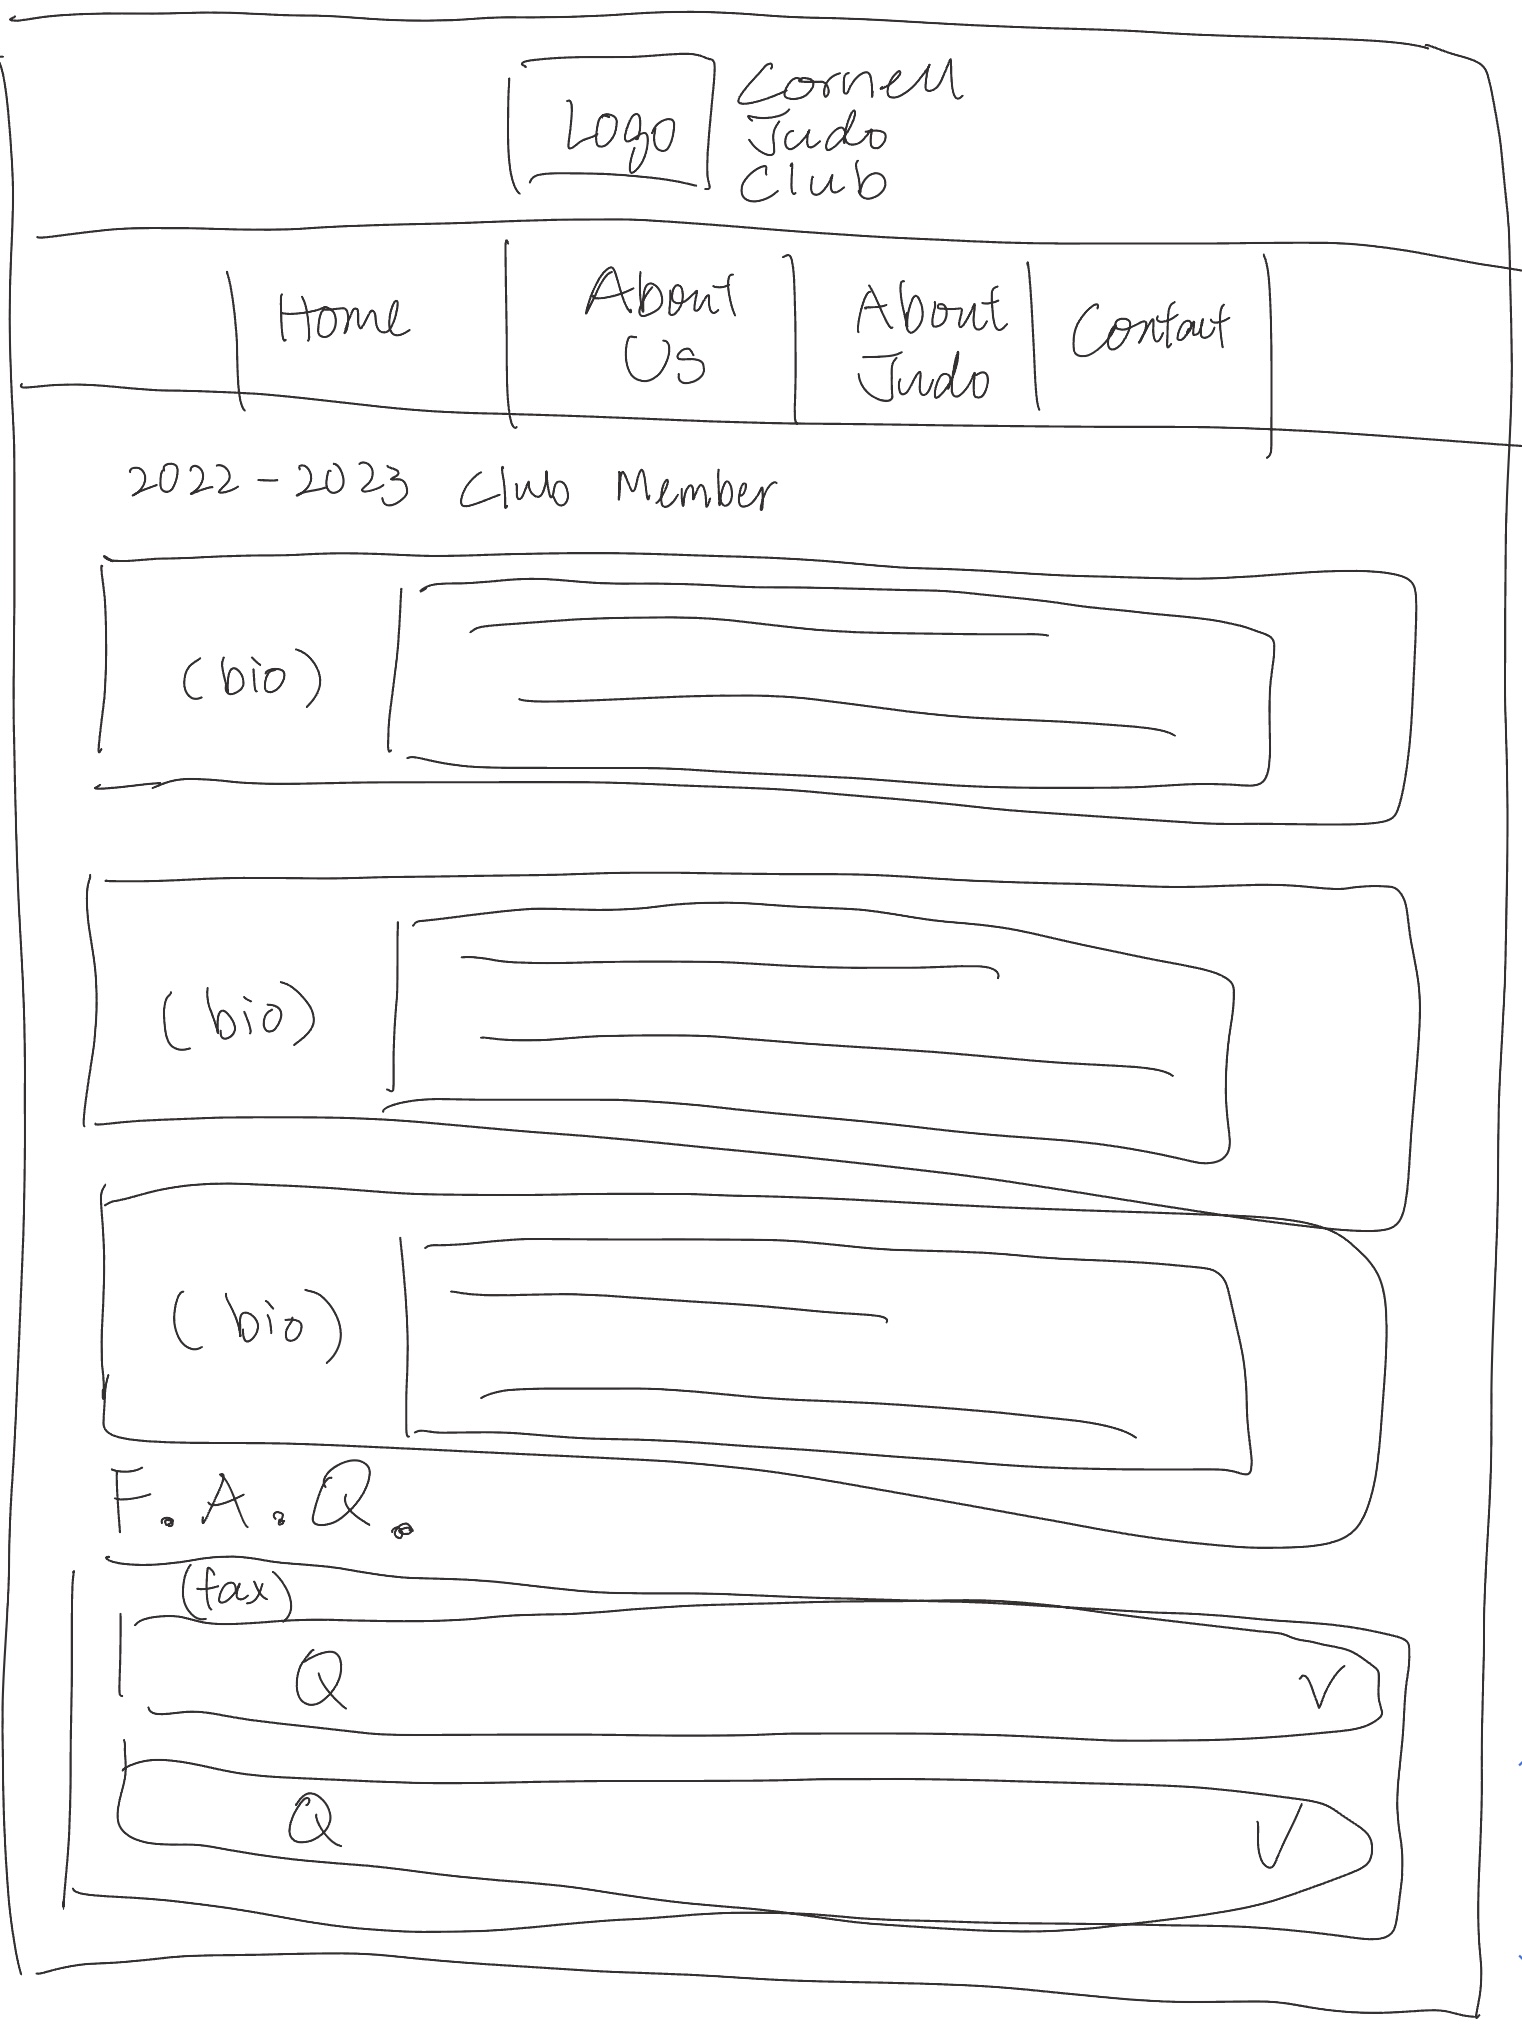 Logo
Cornell
Judo
Club
Home
About
Us
About
Judo
Contact
2022-2023 Club Member
(bio)
(bio)
(bio)
F.A.Q.
(fax)
Q V
Q V